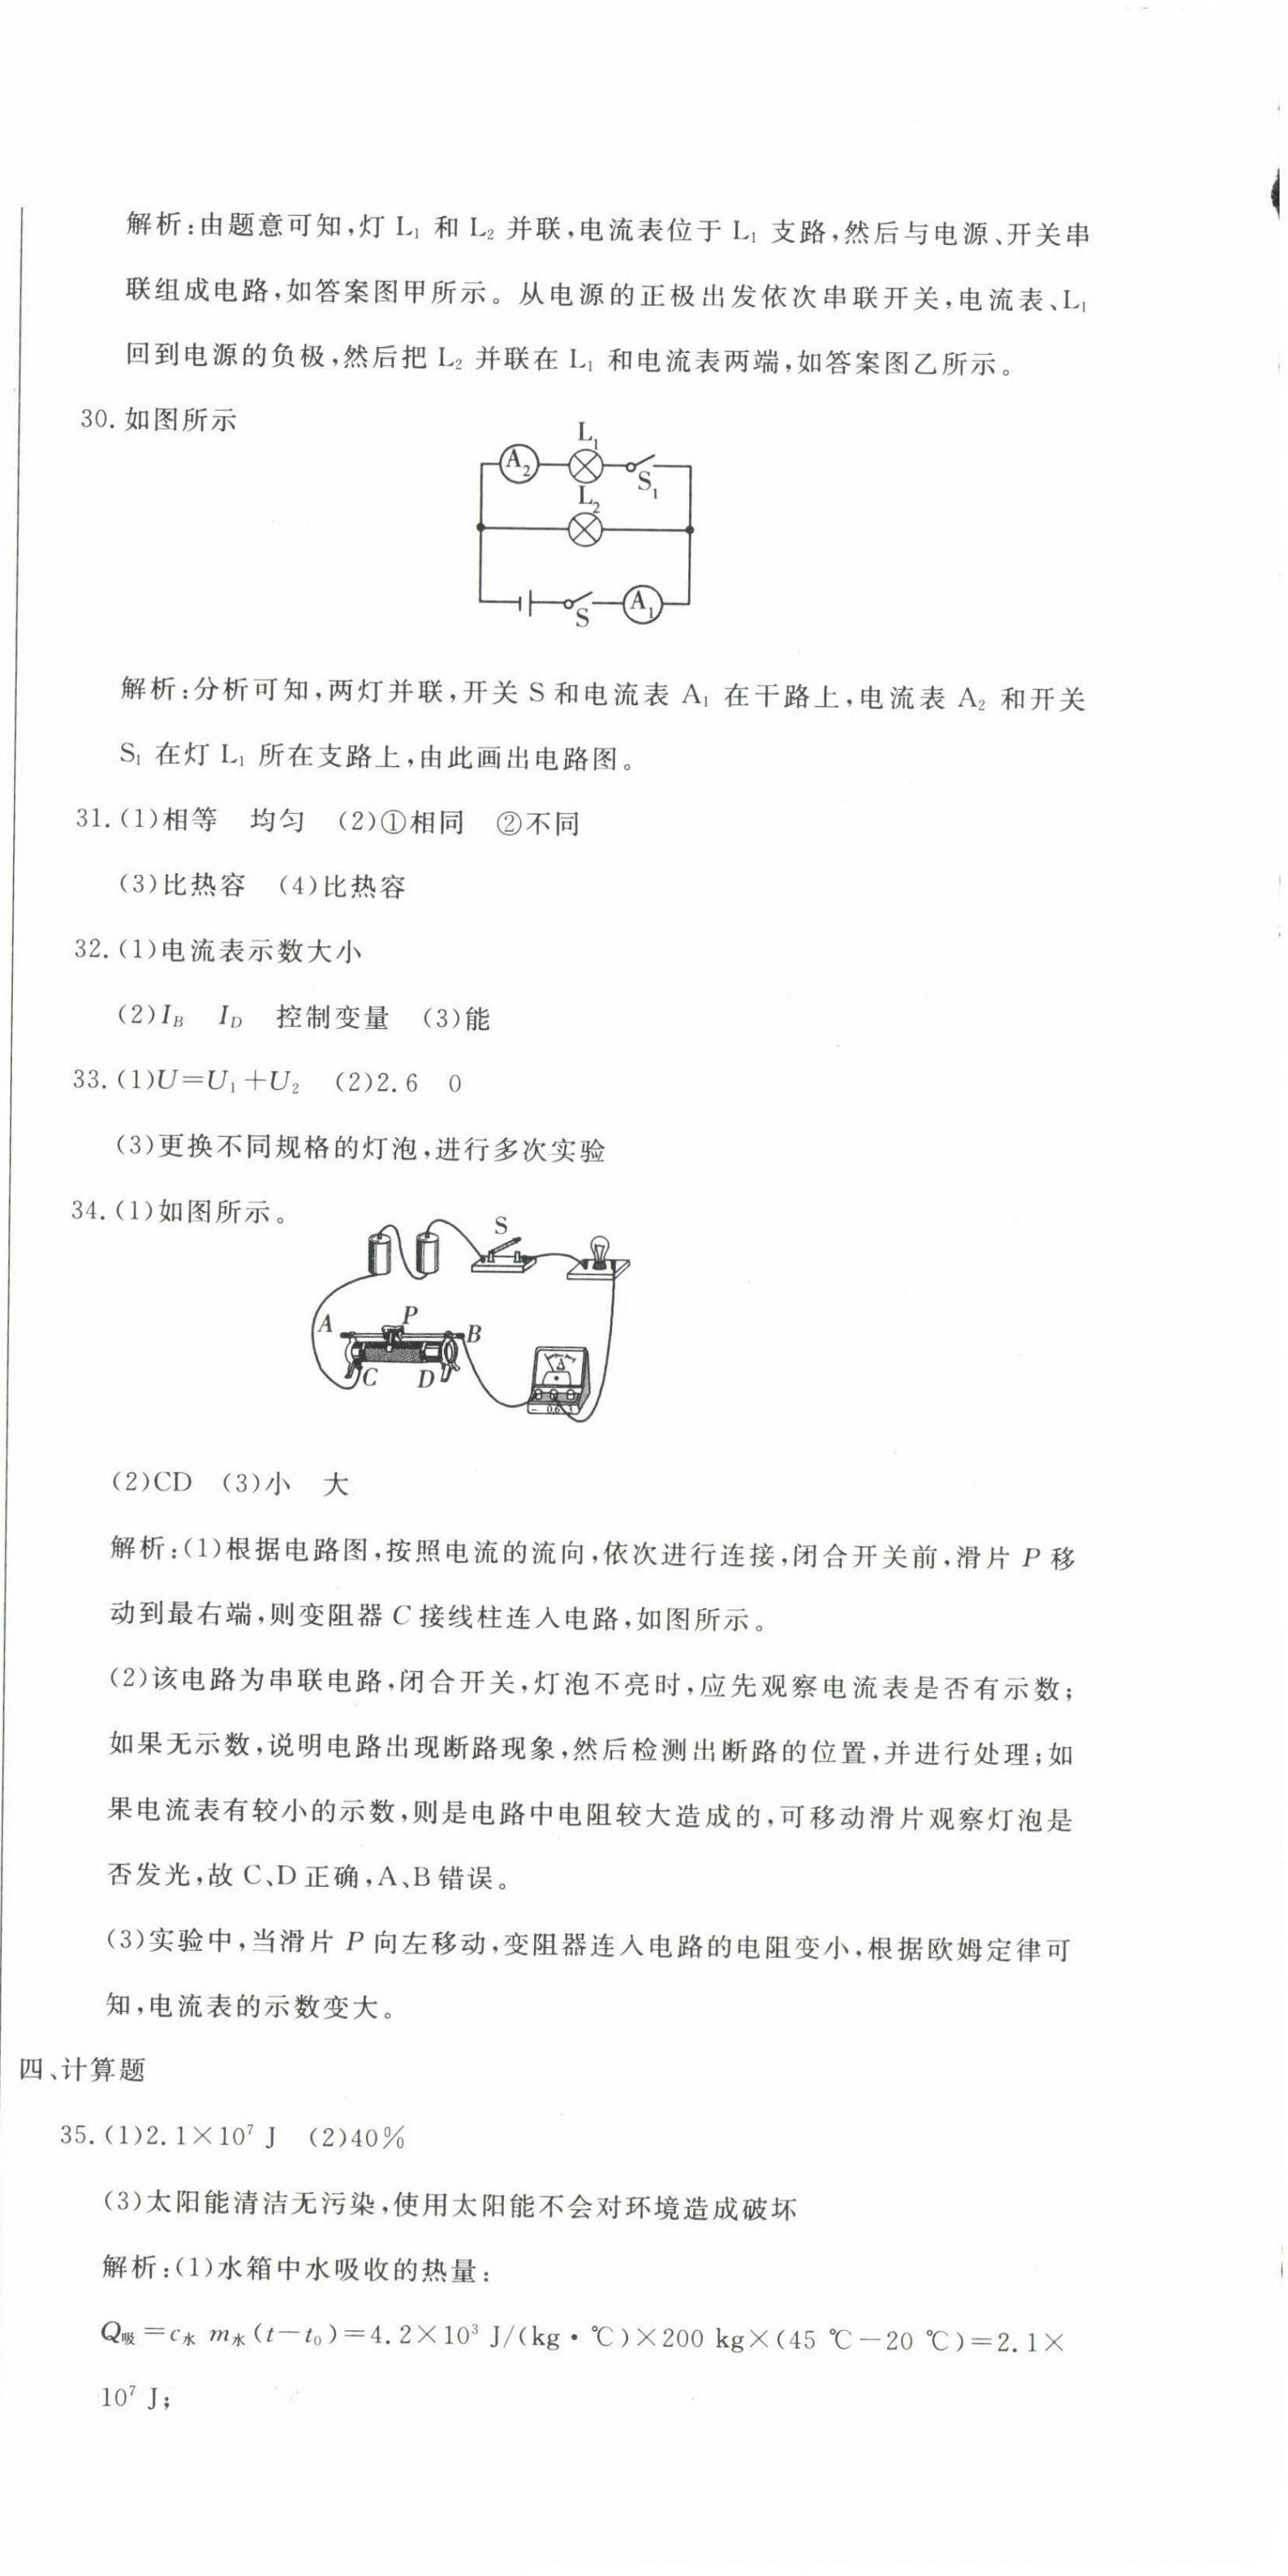 解析:由题意可知,灯 L₁ 和 L₂ 并联,电流表位于 L₁ 支路,然后与电源、开关串
联组成电路,如答案图甲所示。从电源的正极出发依次串联开关,电流表、L₁
回到电源的负极,然后把 L₂ 并联在 L₁ 和电流表两端,如答案图乙所示。
30. 如图所示
L₁
A₂
S₁
L₂
S
A₁
解析:分析可知,两灯并联,开关 S 和电流表 A₁ 在干路上,电流表 A₂ 和开关
S₁ 在灯 L₁ 所在支路上,由此画出电路图。
31. (1)相等 均匀 (2)①相同 ②不同
(3)比热容 (4)比热容
32. (1)电流表示数大小
(2)I_B I_D 控制变量 (3)能
33. (1)U=U₁+U₂ (2)2.6 0
(3)更换不同规格的灯泡,进行多次实验
34. (1)如图所示。
S
A P B
C D
A
- 0.6 3
(2)CD (3)小 大
解析:(1)根据电路图,按照电流的流向,依次进行连接,闭合开关前,滑片 P 移
动到最右端,则变阻器 C 接线柱连入电路,如图所示。
(2)该电路为串联电路,闭合开关,灯泡不亮时,应先观察电流表是否有示数;
如果无示数,说明电路出现断路现象,然后检测出断路的位置,并进行处理;如
果电流表有较小的示数,则是电路中电阻较大造成的,可移动滑片观察灯泡是
否发光,故 C、D 正确,A、B 错误。
(3)实验中,当滑片 P 向左移动,变阻器连入电路的电阻变小,根据欧姆定律可
知,电流表的示数变大。
四、计算题
35. (1)2.1×10⁷ J (2)40%
(3)太阳能清洁无污染,使用太阳能不会对环境造成破坏
解析:(1)水箱中水吸收的热量:
Q吸=c水 m水(t-t₀)=4.2×10³ J/(kg·℃)×200 kg×(45 ℃-20 ℃)=2.1×
10⁷ J;